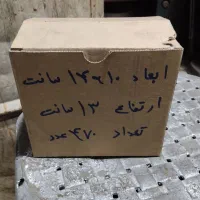 ابعاد ۱۰×۱۴ سانت
ارتفاع ۱۳ سانت
تعداد ۴۷۰ عدد